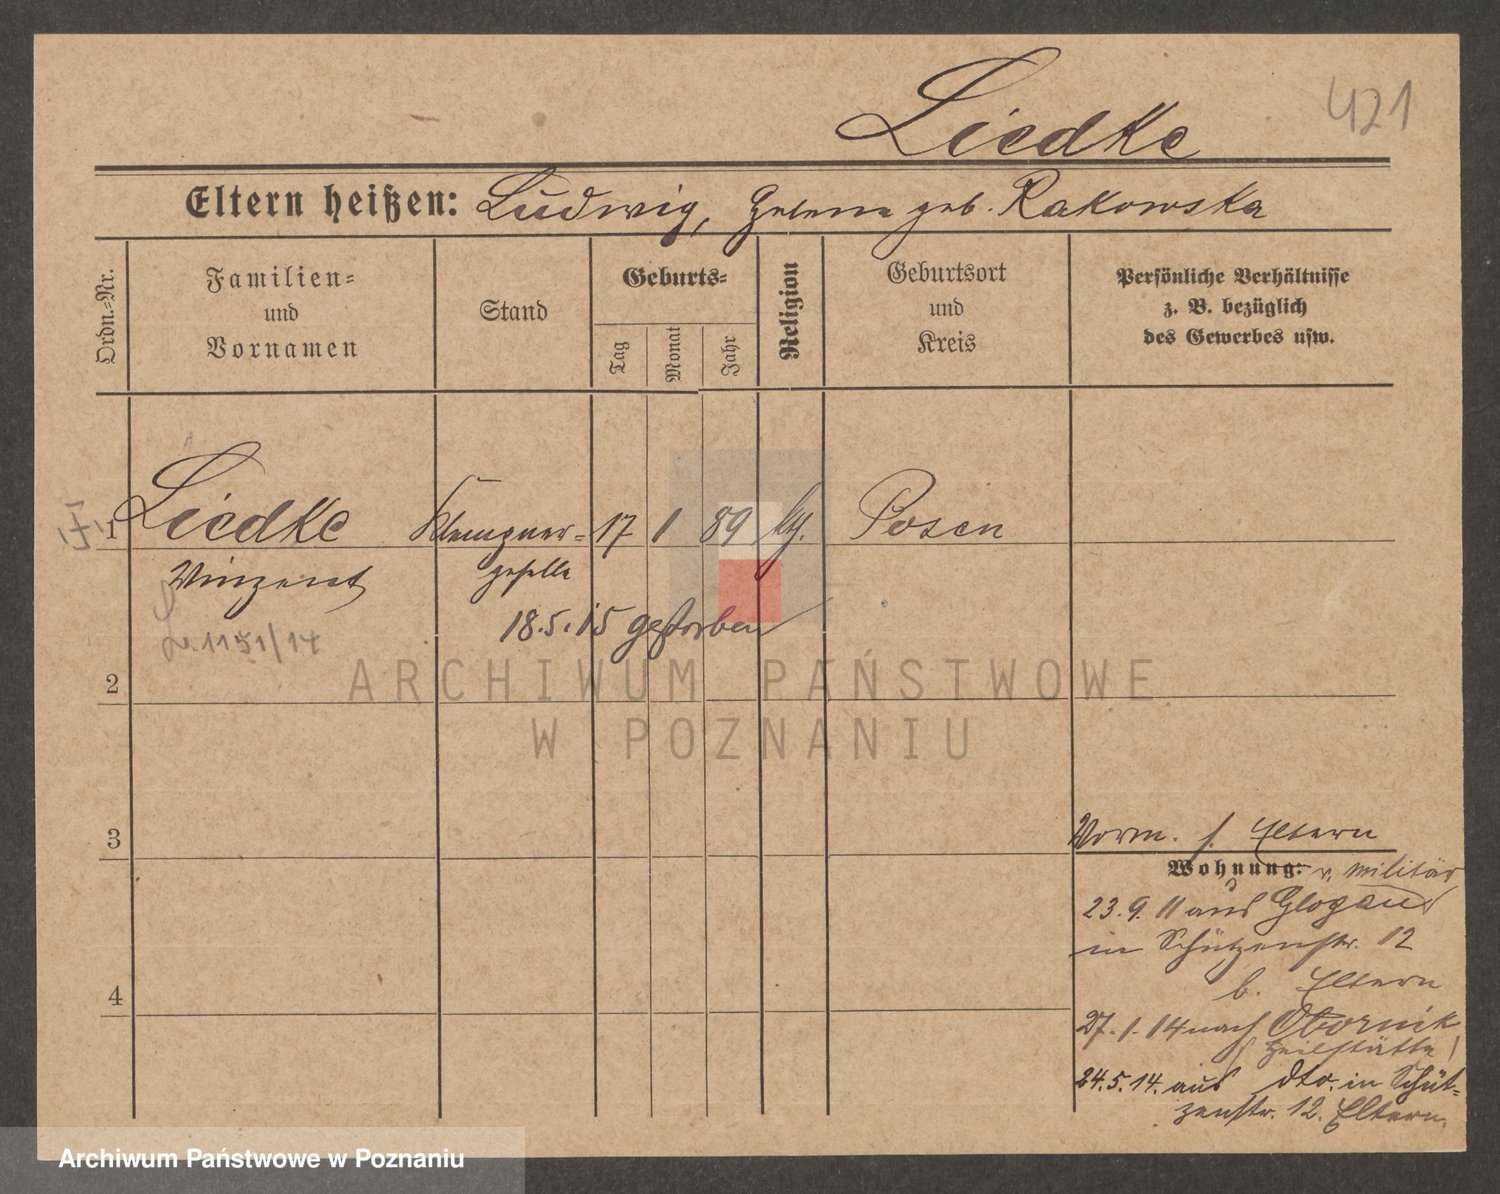 Liedke
421
Eltern heißen: Ludwig, Helene geb. Rakowska
Ordn.=Nr.
Familien=
und
Vornamen
Stand
Geburts=
Tag
Monat
Jahr
Religion
Geburtsort
und
Kreis
Persönliche Verhältnisse
z. B. bezüglich
des Gewerbes usw.
1 Liedke Klempner= 17 1 89 Posen
Vinzent geselle
18.5.15 gestorben
1151/14
2
3
4
Vorm. s. Eltern
Wohnung: v. Militär
23.9.11 aus Glogau
in Schützenstr. 12
b. Eltern
27.1.14 nach Obornik
Heilstätte
24.5.14. aus dto. in Schüt-
zenstr. 12. Eltern.
ARCHIWUM PAŃSTWOWE
W POZNANIU
Archiwum Państwowe w Poznaniu